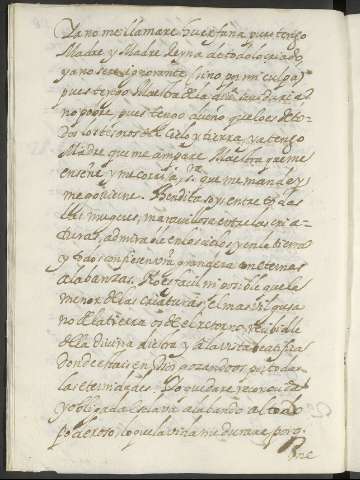 Ya no me llamare huerfana pues tengo
Madre y Madre Reyna de todo lo criado,
ya no sere ignorante (sino por mi culpa)
pues tengo Maestra de la
no pobre, pues tengo dueño que lo es de to-
dos los tesoros del Cielo y tierra, ya tengo
Madre que me ampare Maestra que me
enseñe y me corrija, Sra. que me mande y
me govierne. Bendita soys entre todas
las mugeres, maravillosa entre las cria-
turas, admirable en los cielos y en la tierra
y todos confiesen vra grandeza con eternas
alabanzas. No es facil ni posible que la
menor de las criaturas, el mas vil gusa
no de la tierra os de el retorno, recibidle
de la divina diestra y a la vista beatifica
donde estais en Dios gozandoos por todas
las eternidades. Yo quedare reconocida
y obligada esclava alabando al todo
poderoso, lo que la vida me durare, porq-
ue